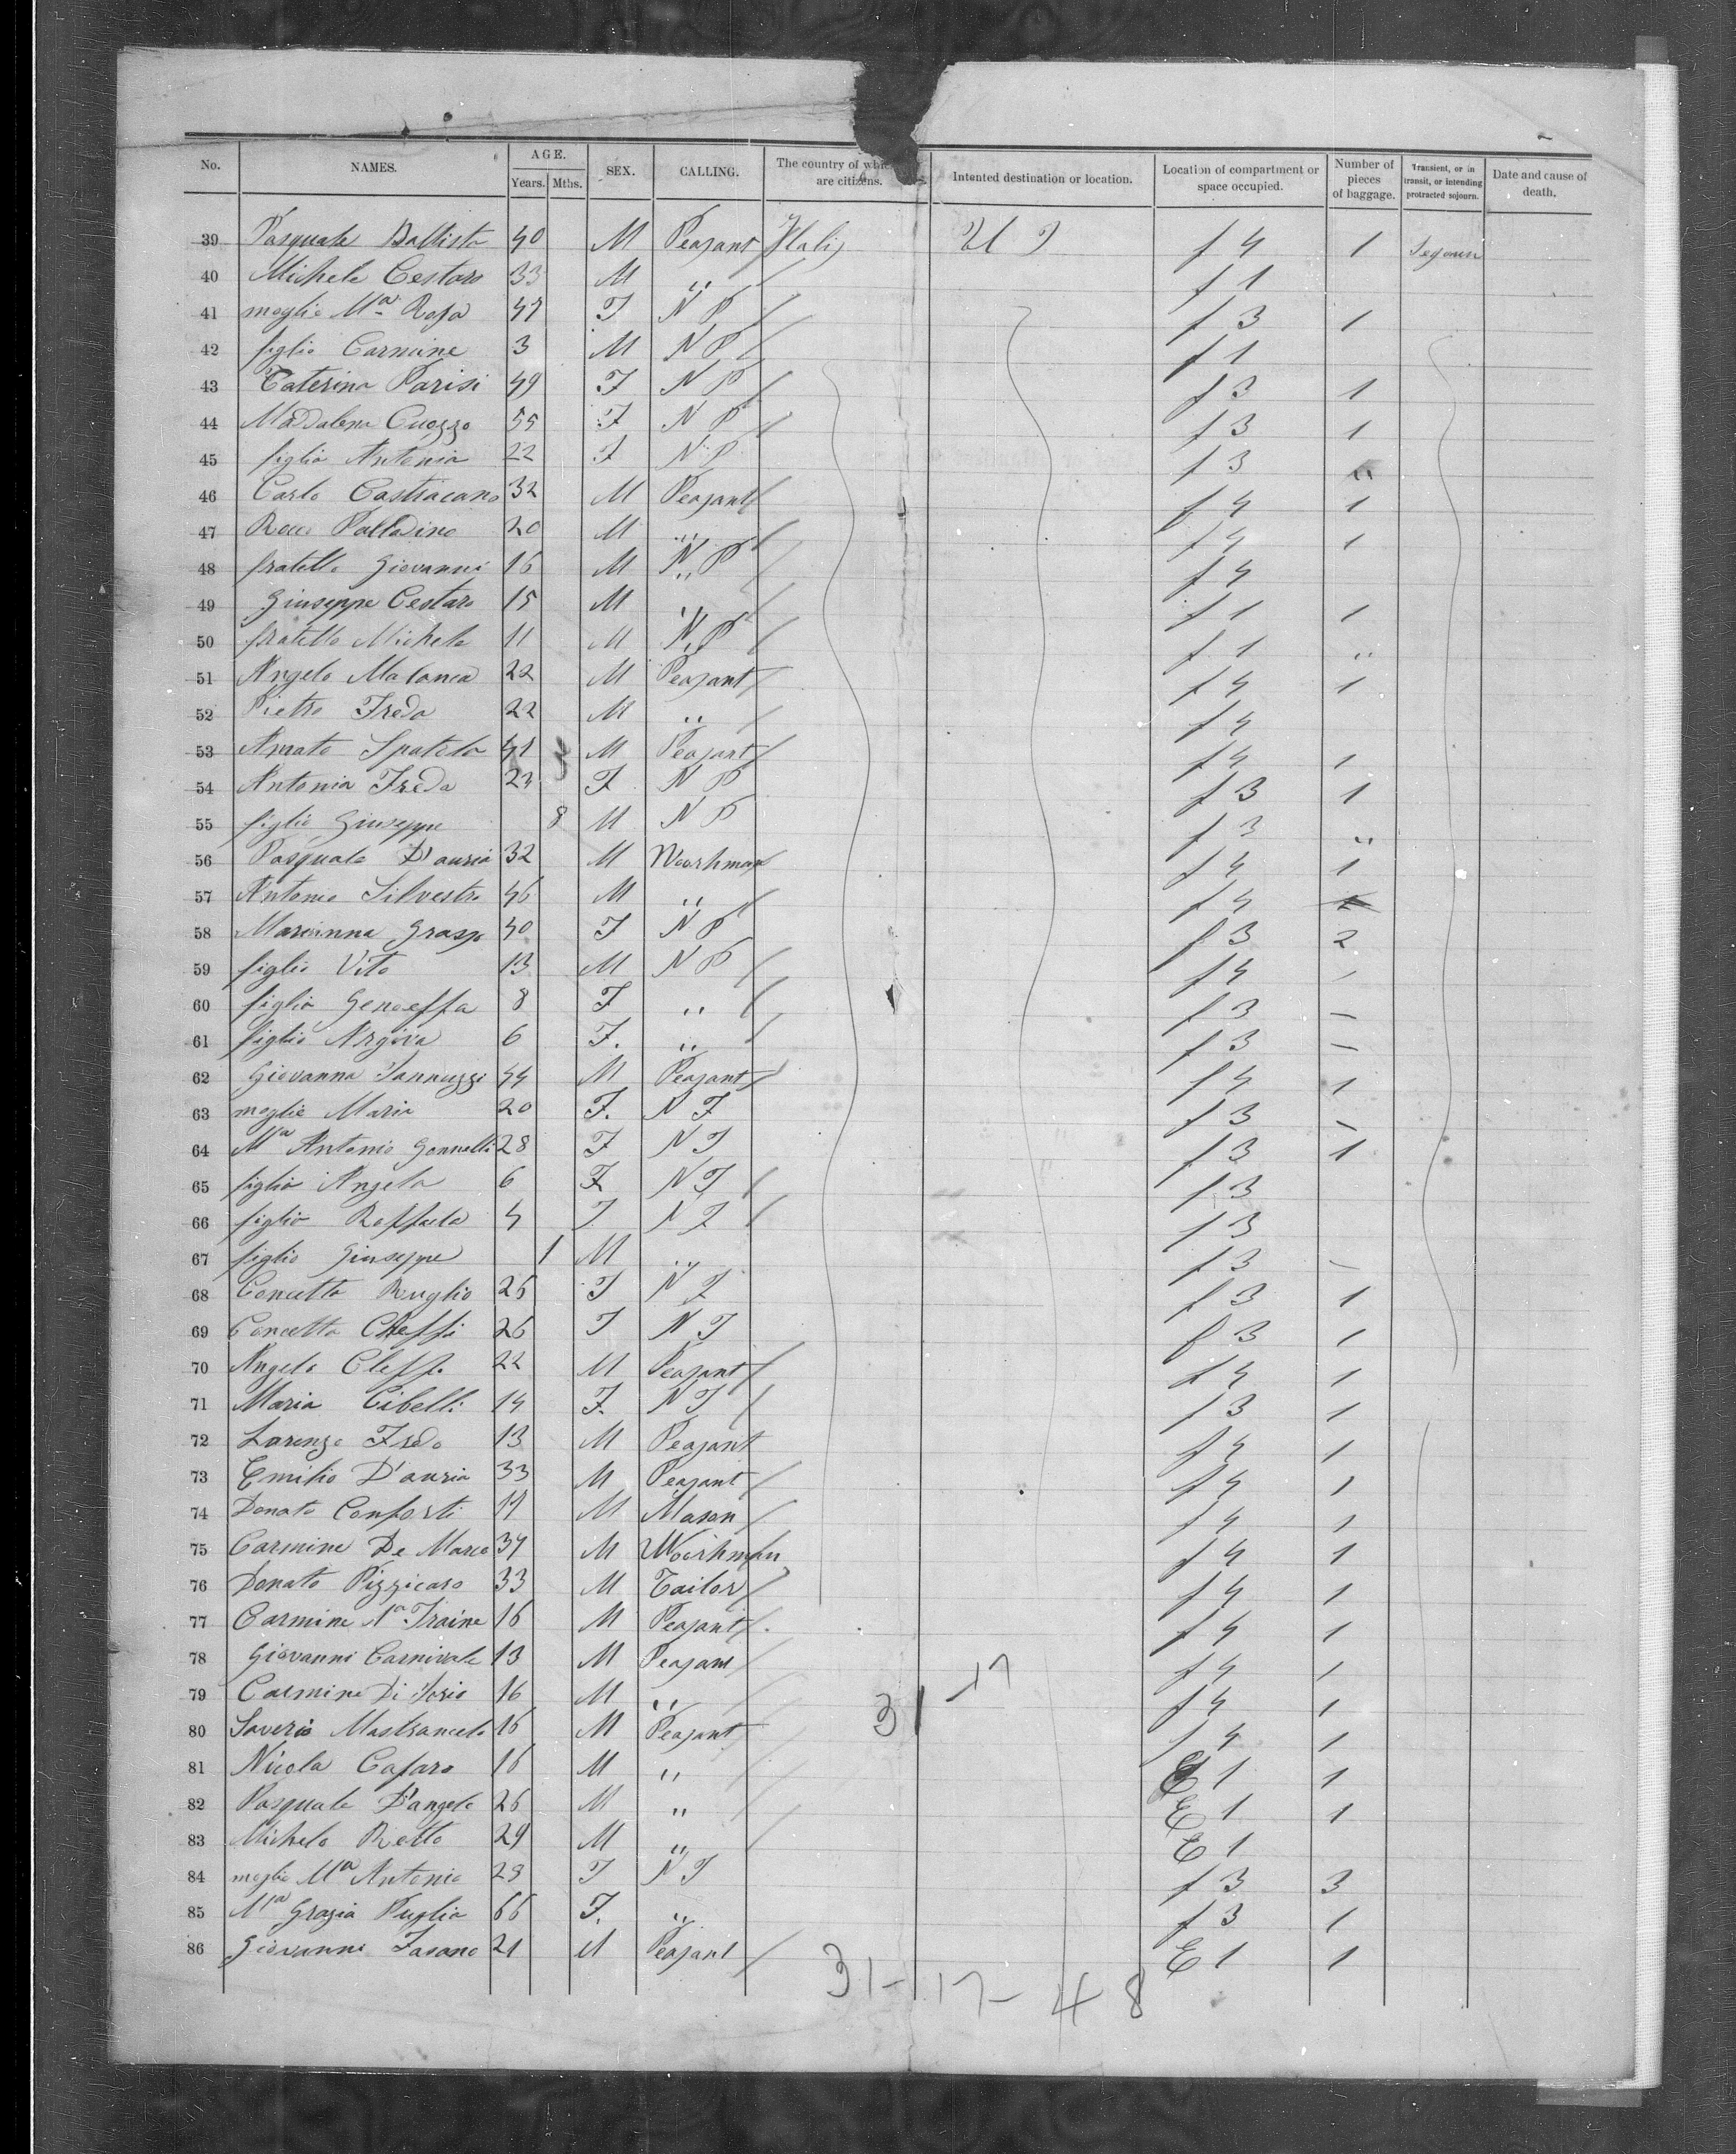 No. NAMES. AGE. Years. Mths. SEX. CALLING. The country of whi are citizens. Intented destination or location. Location of compartment or space occupied. Number of pieces of baggage. Transient, or in transit, or intending protracted sojourn. Date and cause of death.
39 Pasquale Ballista 40 M Peasant Italy U S f 4 1 Sejourn
40 Michele Cestaro 33 M " f 1
41 moglie Mª Rosa 47 F N P f 3 1
42 figlio Carmine 3 M N P f 1
43 Caterina Parisi 49 F N P f 3 1
44 Maddalena Cuozzo 55 F N P f 3 1
45 figlia Antonia 22 F N P f 3
46 Carlo Castracano 32 M Peasant f 4 1
47 Rocco Palladino 20 M " f 4 1
48 fratello Giovanni 16 M N P f 4
49 Giuseppe Cestaro 15 M " f 1 1
50 fratello Michele 11 M N P f 1 "
51 Angelo Malanca 22 M Peasant f 4 1
52 Pietro Freda 22 M " f 4
53 Amato Spatola 41 M Peasant f 4 1
54 Antonia Freda 23 F N P f 3 1
55 figlio Giuseppe 8 M N P f 3 "
56 Pasquale D'auria 32 M Woorkman f 4 1
57 Antonio Silvestro 46 M " f 4
58 Marianna Grasso 40 F N P f 3 2
59 figlio Vito 13 M N P f 4
60 figlia Genoeffa 8 F " f 3 —
61 figlia Argiva 6 F. " f 3 —
62 Giovanna Iannuzzi 44 M Peasant f 4 1
63 moglie Maria 20 F. N F f 3 —
64 Mª Antonia Gonnelli 28 F N F f 3 1
65 figlia Angela 6 F N F f 3
66 figlia Raffaela 4 F N F f 3
67 figlio Giuseppe 1 M " f 3 —
68 Concetta Ruglio 25 F N F f 3 1
69 Concetta Cheffi 26 F N F f 3 1
70 Angelo Cleffi 22 M Peasant f 4 1
71 Maria Cibelli 14 F. N F f 3 1
72 Lorenzo Freda 13 M Peasant f 4 1
73 Emilio D'auria 33 M Peasant f 4 1
74 Donato Conforti 17 M Mason f 4 1
75 Carmine De Marco 37 M Woorkman f 4 1
76 Donato Pizzicaro 33 M Tailor f 4 1
77 Carmine Traina 16 M Peasant f 4 1
78 Giovanni Carnivale 13 M Peasant f 4 1
79 Carmine Di Iorio 16 M " f 4 1
31 17
80 Saverio Mastrancelo 16 M Peasant f 4 1
81 Nicola Cafaro 16 M " E 1 1
82 Pasquale D'angelo 26 M " E 1 1
83 Michele Retta 29 M " E 1
84 moglie Mª Antonia 23 F N F f 3 3
85 Mª Grazia Puglia 66 F. " f 3 1
86 Giovanni Fasano 21 M Peasant E 1 1
31 - 17 - 48